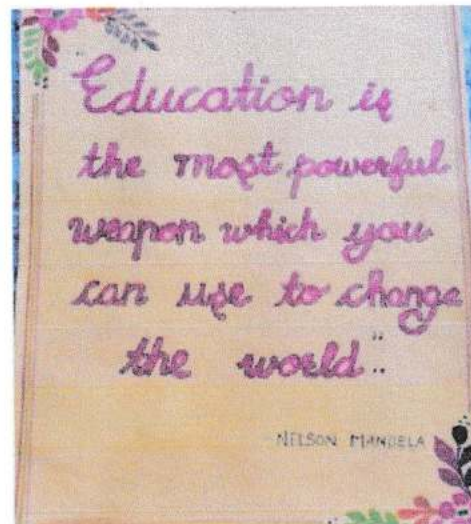 "Education is
the most powerful
weapon which you
can use to change
the world".
- NELSON MANDELA